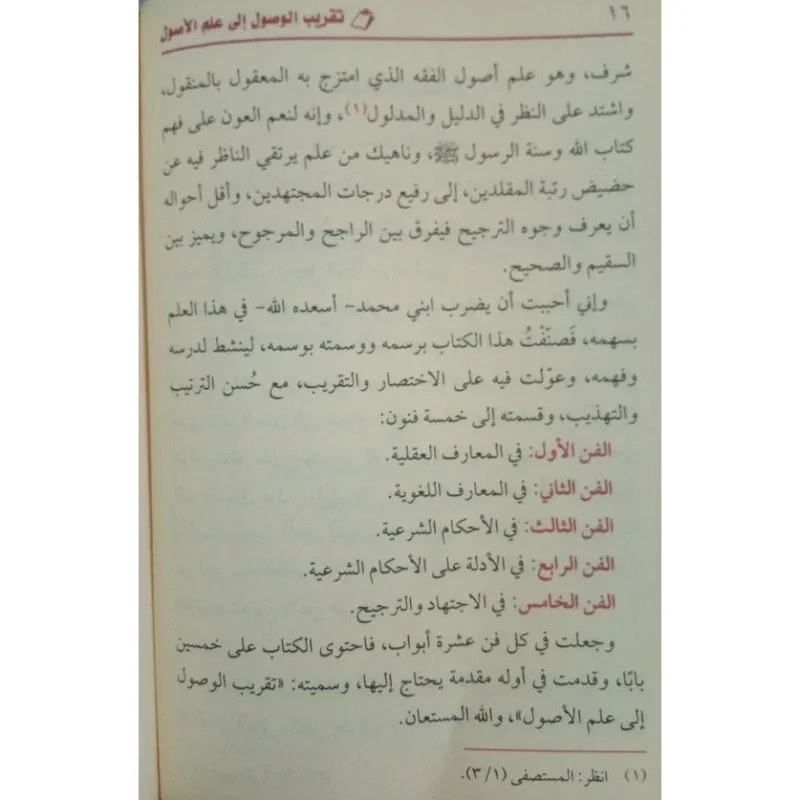 ١٦
تقريب الوصول إلى علم الأصول
شرف، وهو علم أصول الفقه الذي امتزج به المعقول بالمنقول،
واشتد على النظر في الدليل والمدلول(١)، وإنه لنعم العون على فهم
كتاب الله وسنة الرسول ﷺ، وناهيك من علم يرتقي الناظر فيه عن
حضيض رتبة المقلدين، إلى رفيع درجات المجتهدين، وأقل أحواله
أن يعرف وجوه الترجيح فيفرق بين الراجح والمرجوح، ويميز بين
السقيم والصحيح.
وإني أحببت أن يضرب ابني محمد- أسعده الله- في هذا العلم
بسهمه، فَصنّفْتُ هذا الكتاب برسمه ووسمته بوسمه، لينشط لدرسه
وفهمه، وعوّلت فيه على الاختصار والتقريب، مع حُسن الترتيب
والتهذيب، وقسمته إلى خمسة فنون:
الفن الأول: في المعارف العقلية.
الفن الثاني: في المعارف اللغوية.
الفن الثالث: في الأحكام الشرعية.
الفن الرابع: في الأدلة على الأحكام الشرعية.
الفن الخامس: في الاجتهاد والترجيح.
وجعلت في كل فن عشرة أبواب، فاحتوى الكتاب على خمسين
بابًا، وقدمت في أوله مقدمة يحتاج إليها، وسميته: «تقريب الوصول
إلى علم الأصول»، والله المستعان.
(١) انظر: المستصفى (٣/١).